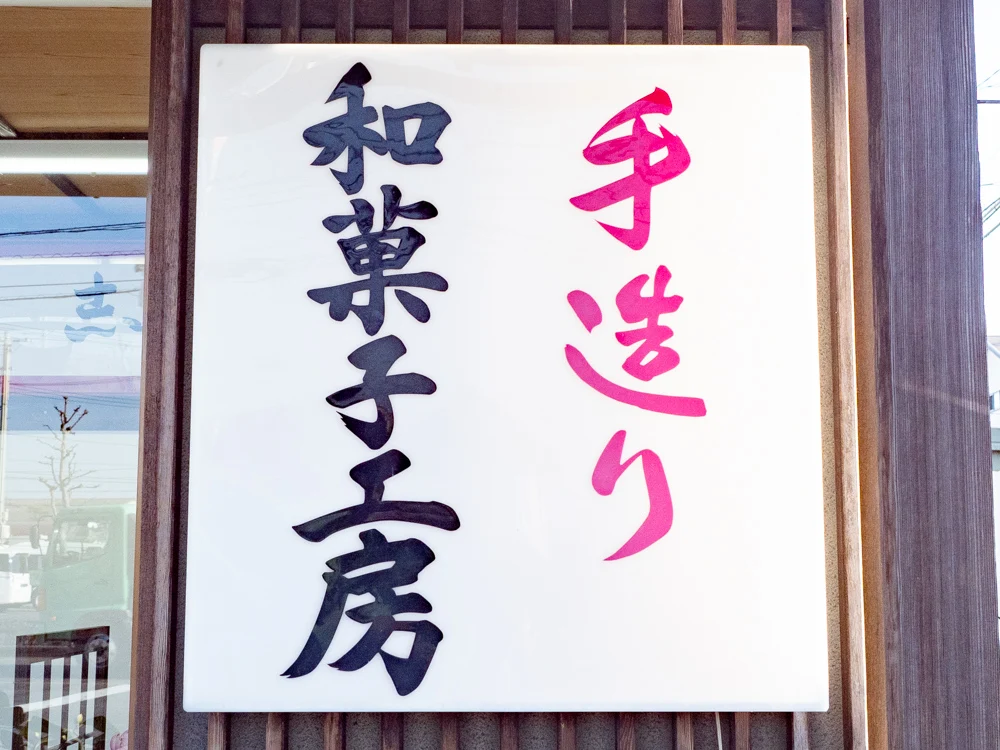 手造り
和菓子工房